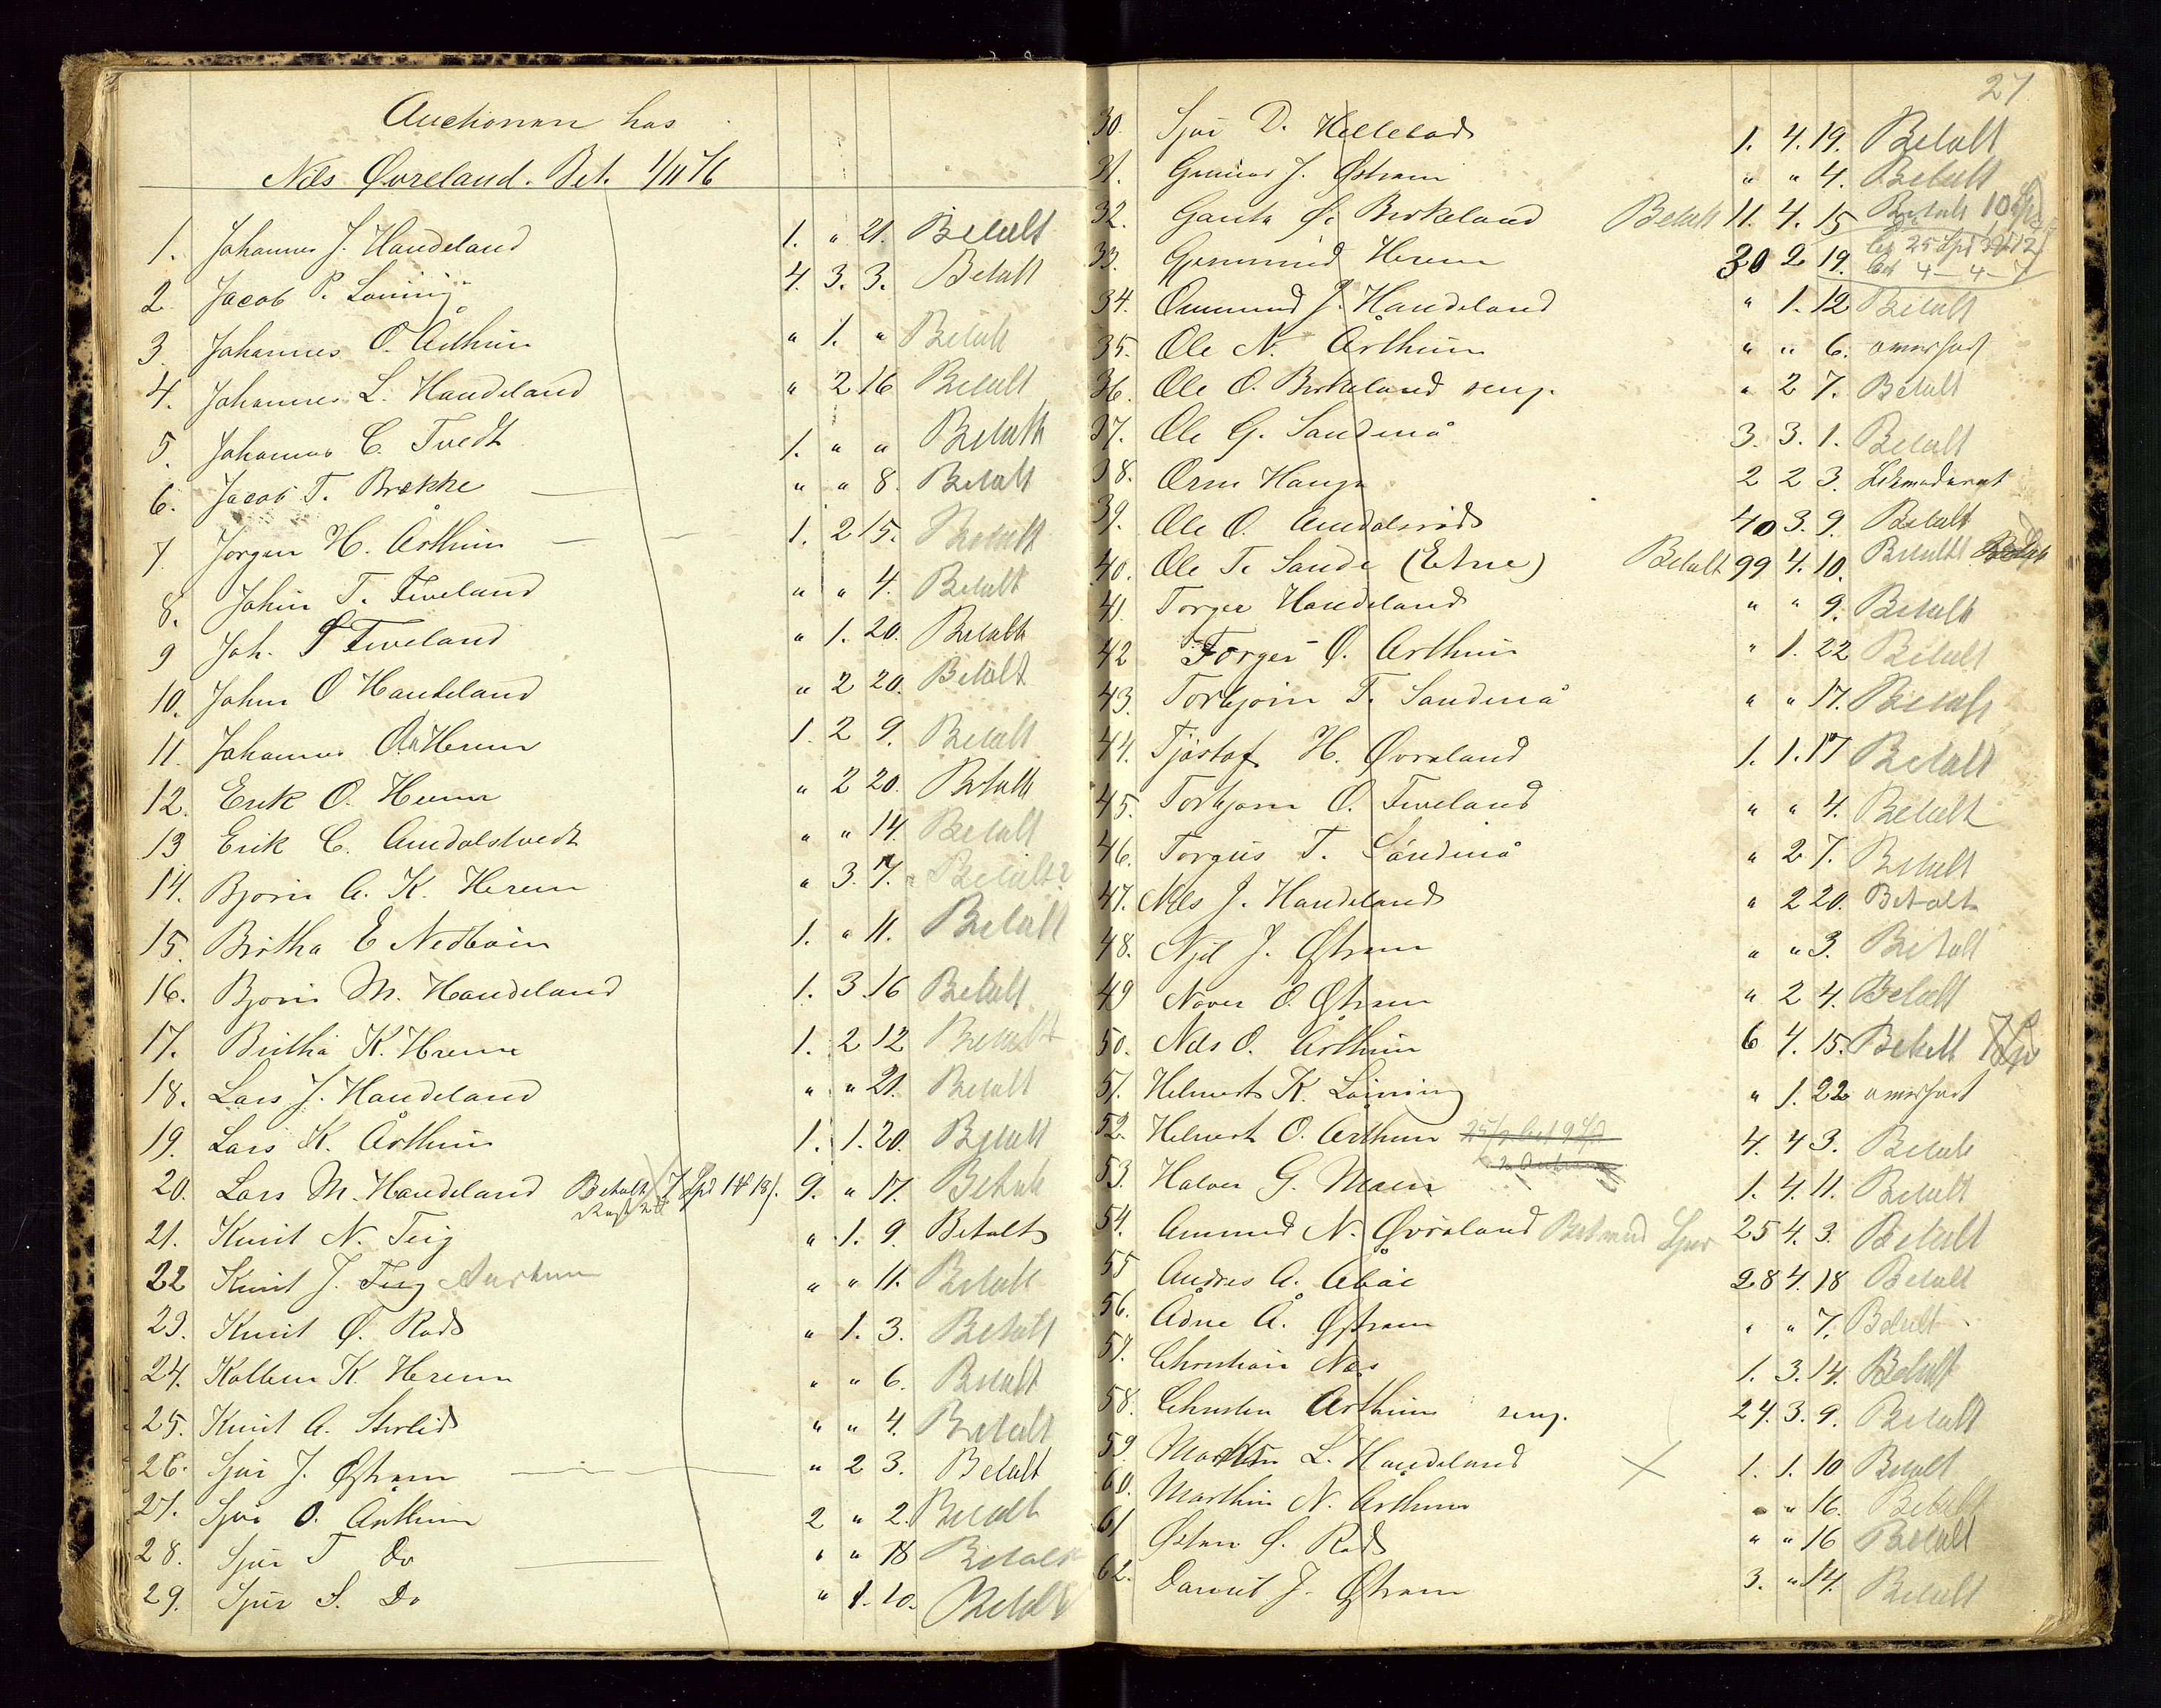 Auctionen hos
Nils Øvreland. Bet. 1/11 76
1. Johannes J. Handeland 1. " 21. Betalt
2. Jacob P. Løining 4. 3. 3. Betalt
3. Johannes O. Årthun " 1. " Betalt
4. Johannes L. Handeland " 2 16 Betalt
5. Johannes C. Tvedt 1. " " Betalt
6. Jacob T. Brække " " 8. Betalt
7. Jørgen H. Årthun 1. 2 15. Betalt
8. John T. Fiveland " " 4. Betalt
9 Joh. Fiveland " 1. 20. Betalt
10. John O Handeland " 2 20. Betalt
11. Johannes Herem 1. 2 9. Betalt
12. Erik O. Herem " 2 20. Betalt
13 Erik C. Amdalstvedt " " 14. Betalt
14. Bjørn A. K. Herem " 3. 7. Betalt?
15. Britha E Nedbøin 1. " 11. Betalt
16. Bjørn M. Handeland 1. 3. 16 Betalt
17. Britha K. Herem 1. 2 12 Betalt
18. Lars J. Handeland " " 21. Betalt
19. Lars K. Årthun 1. 1. 20. Betalt
20. Lars M. Handeland Betalt 7 Spd 1 18 9. " 17. Betalt
21. Knut N. Teig " 1. 9. Betalt
22 Knut J. Teig " " 11. Betalt
23. Knut Ø. Rød " 1. 3. Betalt
24. Kolben K. Herem " " 6. Betalt
25. Knut A. " " 4. Betalt
26. Sjur J. Østrem " 2 3. Betalt
27. Sjur O. Arthun 2 " 2. Betalt
28. Sjur T Do " " 18 Betalt
29. Sjur S. Do " 1. 10. Betalt
27
30. Sjur D. Hellebad 1. 4. 19. Betalt
31. J. Østrem " " 4. Betalt
32. Gauta Ø. Birkeland Betalt 11. 4. 15 Betalt 10
33. Gjermund Herem 30 2 19. 25 Spd
34. Ommund J. Handeland " 1. 12 Betalt
35. Ole N. Årthun " " 6. overført
36. Ole O. Birkeland " 2 7. Betalt
37. Ole G. Sandmå 3. 3. 1. Betalt
38. Orm Hauge 2 2 3.
39. Ole O. 40 3. 9. Betalt
40. Ole T. Sande (Etne) Betalt 99 4. 10. Betalt
41. Torger Handeland " " 9. Betalt
42 Torger Ø. Arthun " 1. 22 Betalt
43. Torbjørn T. Sandmå " " 17. Betalt
44. Tjøstof H. Øvreland 1. 1. 17 Betalt
45. Torbjørn O. Fiveland " " 4. Betalt
46. Torgils T. Sandmå " 2 7. Betalt
47. Nils J. Handeland " 2 20. Betalt
48. Njel J. Østrem " " 3. Betalt
49 O. Østrem " 2 4. Betalt
50. Nils O. Årthun 6 4. 15. Betalt
51. Helmert K. Løining " 1. 22 overført
52. Helmert O. Årthun 4. 4 3. Betalt
53. Halvor G. 1. 4. 11. Betalt
54. Ammund N. Øvreland Bet med Sjur 25 4. 3. Betalt
55 Andres A. Åbøe 28 4. 18 Betalt
56. Ådne Å. Østrem " " 7. Betalt
57. Christian Næs 1. 3. 14. Betalt
58. Christen Arthun 24. 3. 9. Betalt
59. Marthin L. Handeland 1. 1. 10 Betalt
60. Marthin N. Årthun " " 16. Betalt
61 Østen Ø. Rød " " 16 Betalt
62. J. Østrem 3. " 14. Betalt